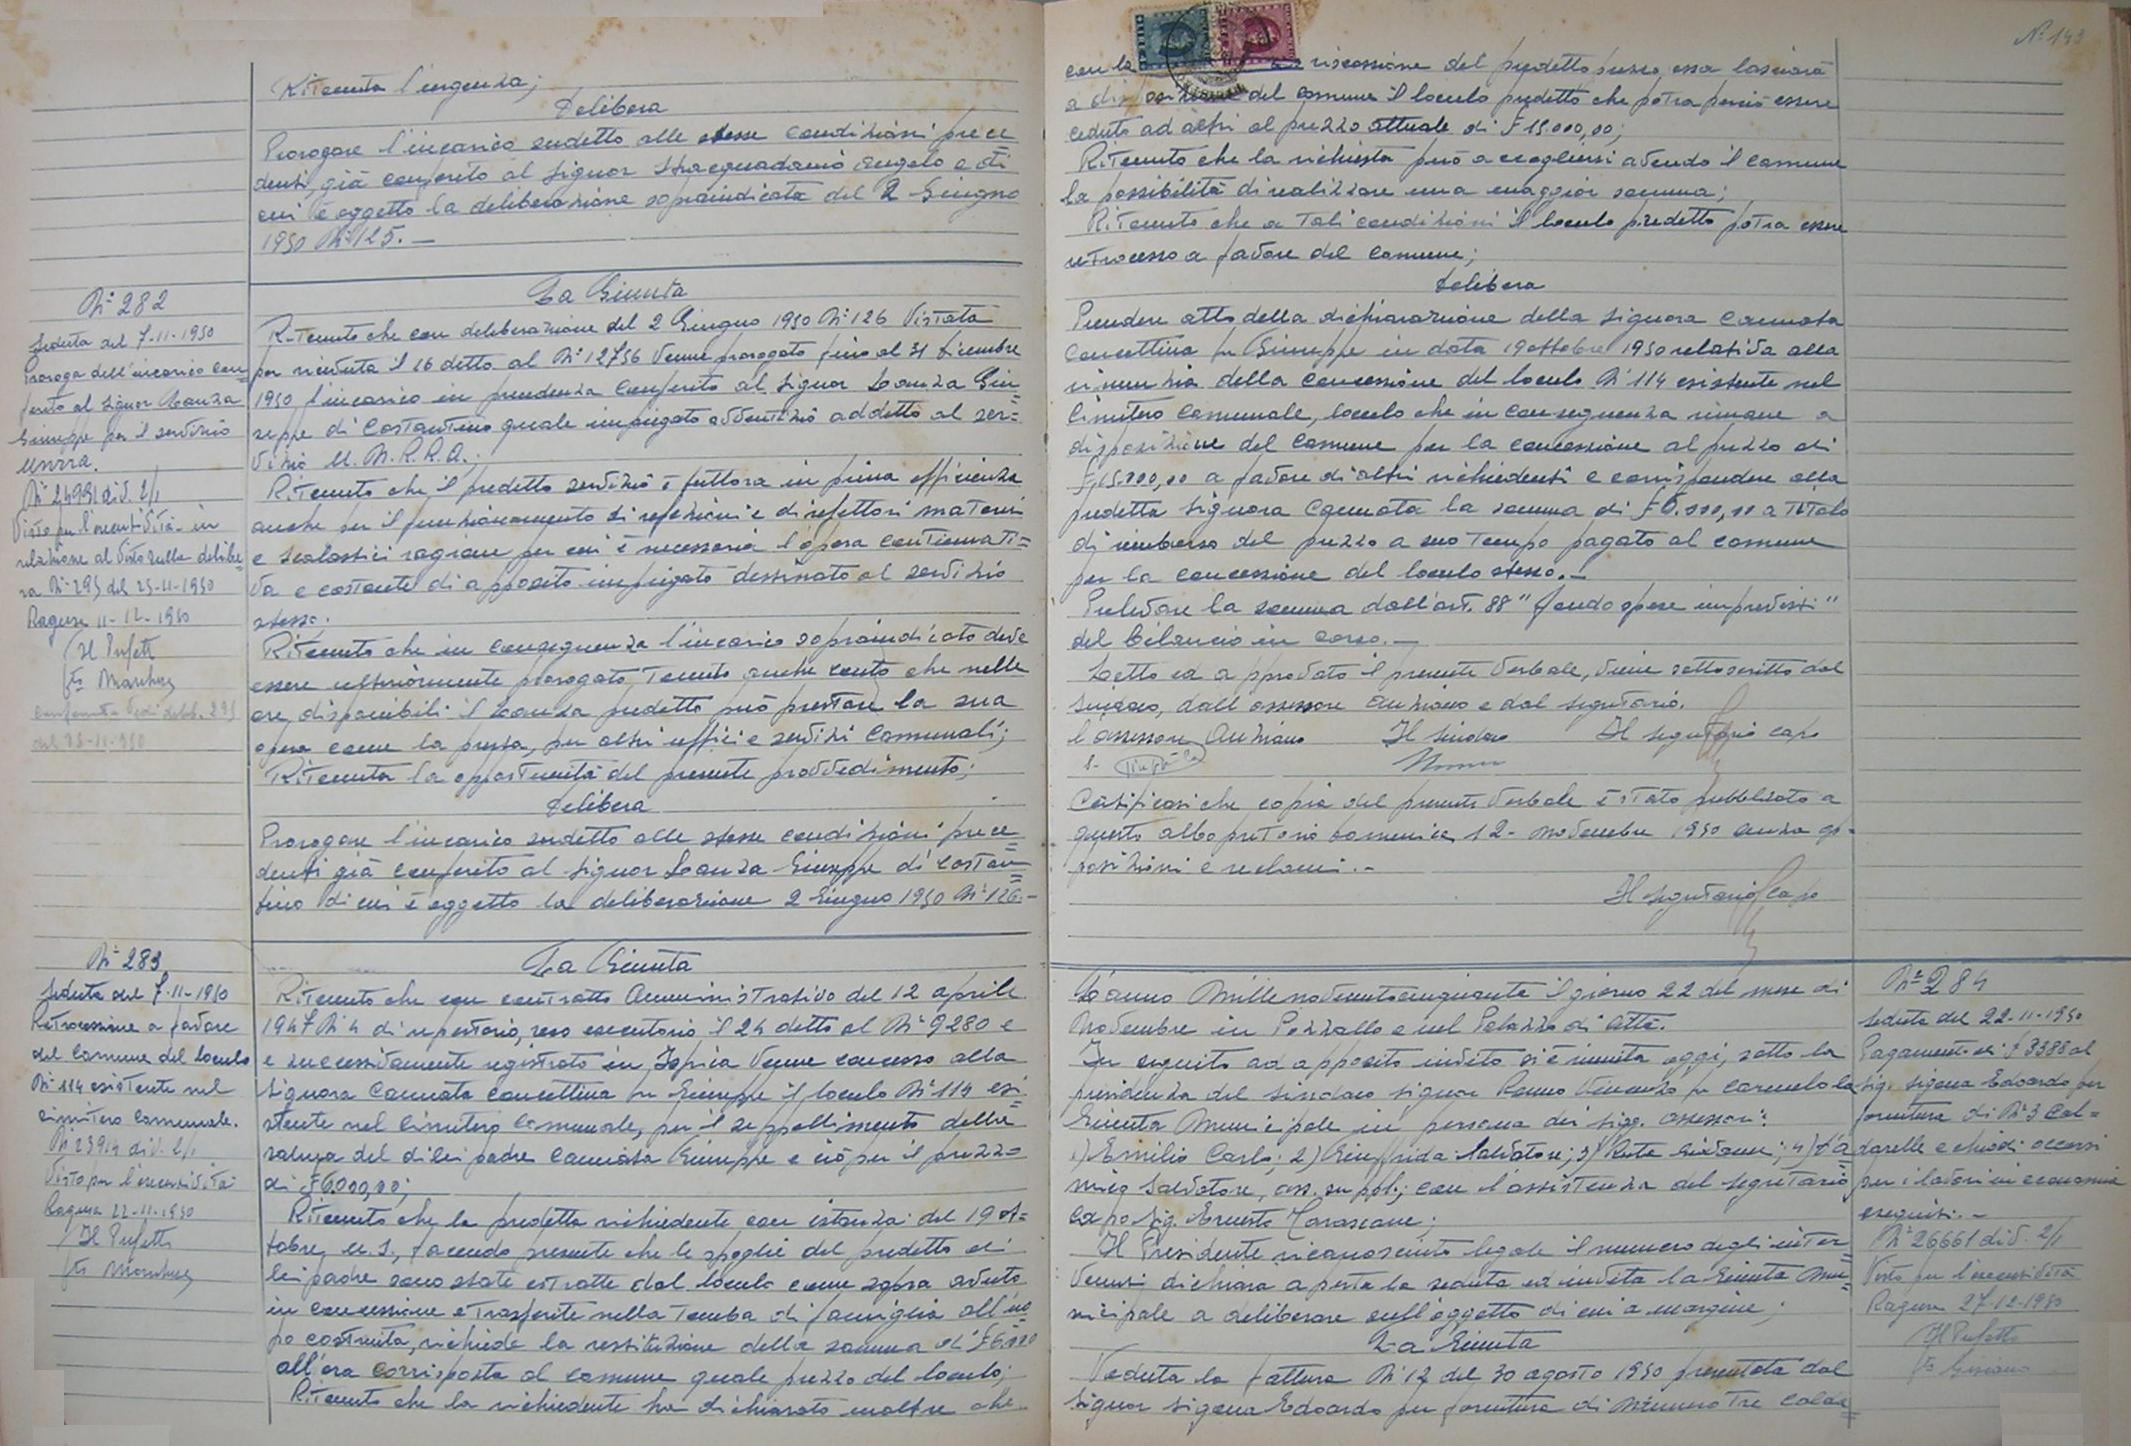 Ritenuta l'urgenza;
Delibera
Prorogare l'incarico sudetto alle stesse condizioni prece=
denti, già conferito al signor Stracquadanio Angelo e di
cui è oggetto la deliberazione sopraindicata del 2 Giugno
1950 N° 125. —
N° 282
Seduta del 7-11-1950
Proroga dell'incarico con=
ferito al signor Lauza
Giuseppe per il servizio
Unrra.
N° 24991 div. 2/1
Visto per l'esecutività in
relazione al visto sulla delibe=
ra N° 295 del 25-11-1950
Ragusa 11-12-1950
Il Prefetto
fto
confermata vedi delib. 295
del 25-11-950
La Giunta
Ritenuto che con deliberazione del 2 Giugno 1950 N° 126 vistata
per ricevuta il 26 detto al N° 12756 venne prorogato fino al 31 Dicembre
1950 l'incarico in precedenza conferito al signor Lauza Giu=
seppe di Costantino quale impiegato avventizio addetto al ser=
vizio U.N.R.R.A.;
Ritenuto che il predetto servizio è tuttora in piena efficienza
anche per il funzionamento di refezioni e di refettori materni
e scolastici ragione per cui è necessaria l'opera continuati=
va e costante di apposito impiegato destinato al servizio
stesso.
Ritenuto che in conseguenza l'incarico sopraindicato deve
essere ulteriormente prorogato, tenuto anche conto che nelle
ore disponibili il Lauza predetto può prestare la sua
opera come la presta, per altri uffici e servizi comunali;
Ritenuta la opportunità del presente provvedimento;
Delibera
Prorogare l'incarico sudetto alle stesse condizioni prece=
denti già conferito al signor Lauza Giuseppe di Costan=
tino di cui è oggetto la deliberazione 2 Giugno 1950 N° 126.—
N° 283
Seduta del 7-11-1950
Retrocessione a favore
del Comune del loculo
N° 114 esistente nel
cimitero comunale.
N° 23914 div. 2/1
Visto per l'esecutività
Ragusa 22-11-1950
Il Prefetto
fto
La Giunta
Ritenuto che con contratto Amministrativo del 12 aprile
1947 N° 4 di repertorio, reso esecutorio il 24 detto al N° 9280 e
e successivamente registrato in Ispica venne concesso alla
signora Cannata Concettina fu Giuseppe il loculo N° 114 esi=
stente nel Cimitero Comunale, per il seppellimento della
salma del di lei padre Cannata Giuseppe e ciò per il prezzo
di £ 6.000,00;
Ritenuto che la predetta richiedente con istanza del 19 ot=
tobre u.s., facendo presente che le spoglie del predetto di
lei padre sono state estratte dal loculo come sopra avuto
in concessione e trasferite nella tomba di famiglia all'uo=
po costruita, richiede la restituzione della somma di £ 6.000
all'ora corrisposta al comune quale prezzo del loculo;
Ritenuto che la richiedente ha dichiarato inoltre che
N° 143
con la riscossione del predetto prezzo essa lascierà
a disposizione del comune il loculo predetto che potrà perciò essere
ceduto ad altri al prezzo attuale di £ 15.000,00;
Ritenuto che la richiesta può accogliersi avendo il comune
la possibilità di realizzare una maggior somma;
Ritenuto che a tali condizioni il loculo predetto potrà essere
retrocesso a favore del comune;
Delibera
Prendere atto della dichiarazione della signora Cannata
Concettina fu Giuseppe in data 19 ottobre 1950 relativa alla
rinunzia della concessione del loculo N° 114 esistente nel
Cimitero Comunale, loculo che in conseguenza rimane a
disposizione del comune per la concessione al prezzo di
£ 15.000,00 a favore di altri richiedenti e corrispondere alla
predetta signora Cannata la somma di £ 6.000,00 a titolo
di rimborso del prezzo a suo tempo pagato al comune
per la concessione del loculo stesso. —
Prelevare la somma dall'art. 88 "Fondo spese impreviste"
del bilancio in corso. —
Letto ed approvato il presente verbale, viene sottoscritto dal
sindaco, dall'assessore anziano e dal segretario.
L'assessore Anziano Il Sindaco Il segretario capo
Certificasi che copia del presente verbale è stato pubblicato a
questo albo pretorio domenica 12 - novembre 1950 senza op=
posizioni e reclami. —
Il segretario Capo
L'anno Millenovecentocinquanta il giorno 22 del mese di
Novembre in Pozzallo e nel Palazzo di Città.
In seguito ad apposito invito si è riunita oggi, sotto la
presidenza del sindaco signor Venanzo fu Carmelo la
Giunta Municipale in persona dei sigg. assessori:
1) Emilio Carlo; 2) Giuffrida Salvatore; 3) Rota Giovanni; 4) D'A=
mico Salvatore, ass. suppl.; con l'assistenza del segretario
Capo Sig. Ernesto Tarascone;
Il Presidente riconosciuto legale il numero degli inter=
venuti dichiara aperta la seduta ed invita la Giunta Mu=
nicipale a deliberare sull'oggetto di cui a margine;
La Giunta
Veduta la fattura N° 12 del 30 agosto 1950 presentata dal
signor Sigona Edoardo per fornitura di numero tre calda=
N° 284
Seduta del 22-11-1950
Pagamento di £ 3388 al
Sig. Sigona Edoardo per
fornitura di N° 3 cal=
darelle e chiodi occorsi
per i lavori in economia
eseguiti. —
N° 26661 div. 2/1
Visto per l'esecutività
Ragusa 27-12-1950
Il Prefetto
fto